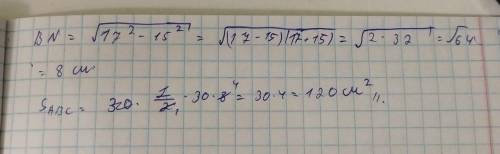 BN = √17² - 15² = √(17-15)(17+15) = √2 · 32 = √64
= 8 см
S ABC = 1/2 · 30 · 8 = 30 · 4 = 120 см²